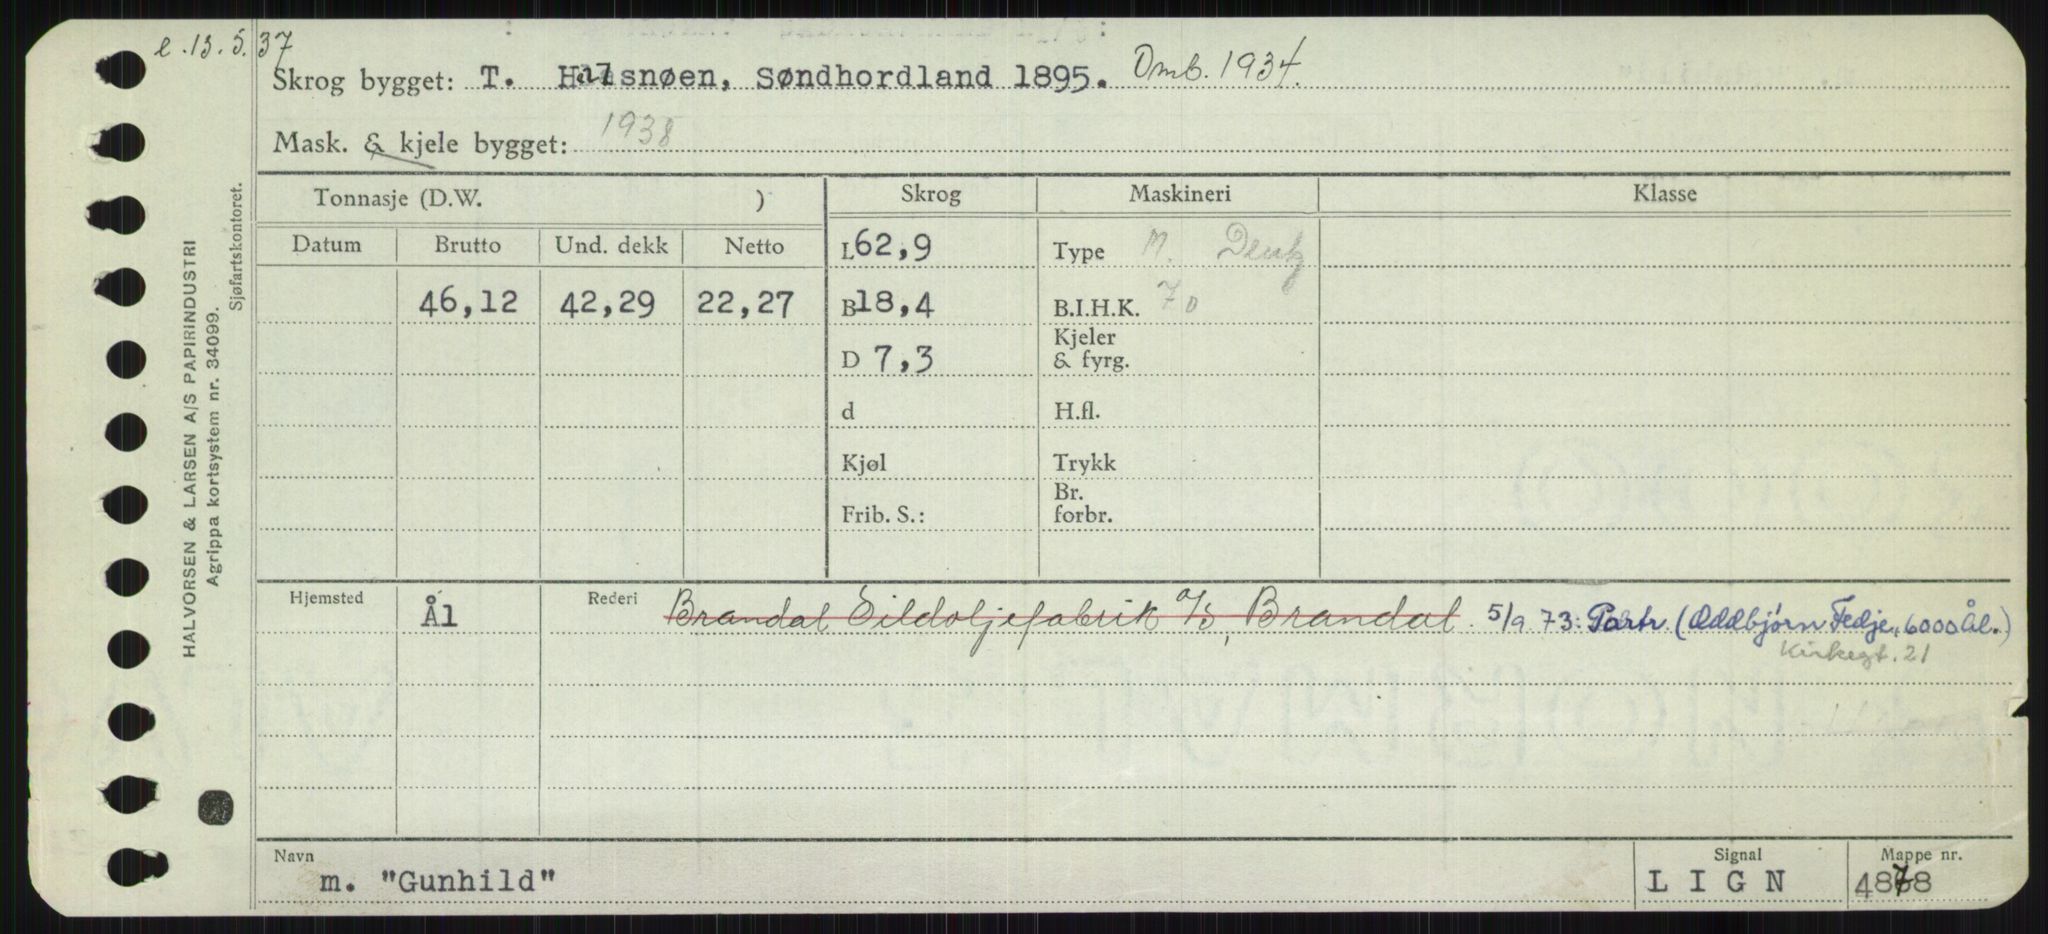 e. 13. 5. 37
Skrog bygget: T. Halsnøen, Søndhordland 1895. Omb. 1934.
Mask. & kjele bygget: 1938
Tonnasje (D.W. ) Skrog Maskineri Klasse
Datum Brutto Und. dekk Netto L 62,9 Type M. Deutz
46,12 42,29 22,27 B 18,4 B.I.H.K. 70
D 7,3 Kjeler & fyrg.
d H.fl.
Kjøl Trykk
Frib. S.: Br. forbr.
Hjemsted Ål Rederi Brandal Sildoljefabrik A/S, Brandal 5/9 73: Partr (Oddbjørn Fedje, 6000 Ål.)
Kirkegt. 21
Navn Signal Mappe nr.
m. "Gunhild" L I G N 4878
HALVORSEN & LARSEN A/S PAPIRINDUSTRI
Agrippa kortsystem nr. 34099.
Sjøfartskontoret.